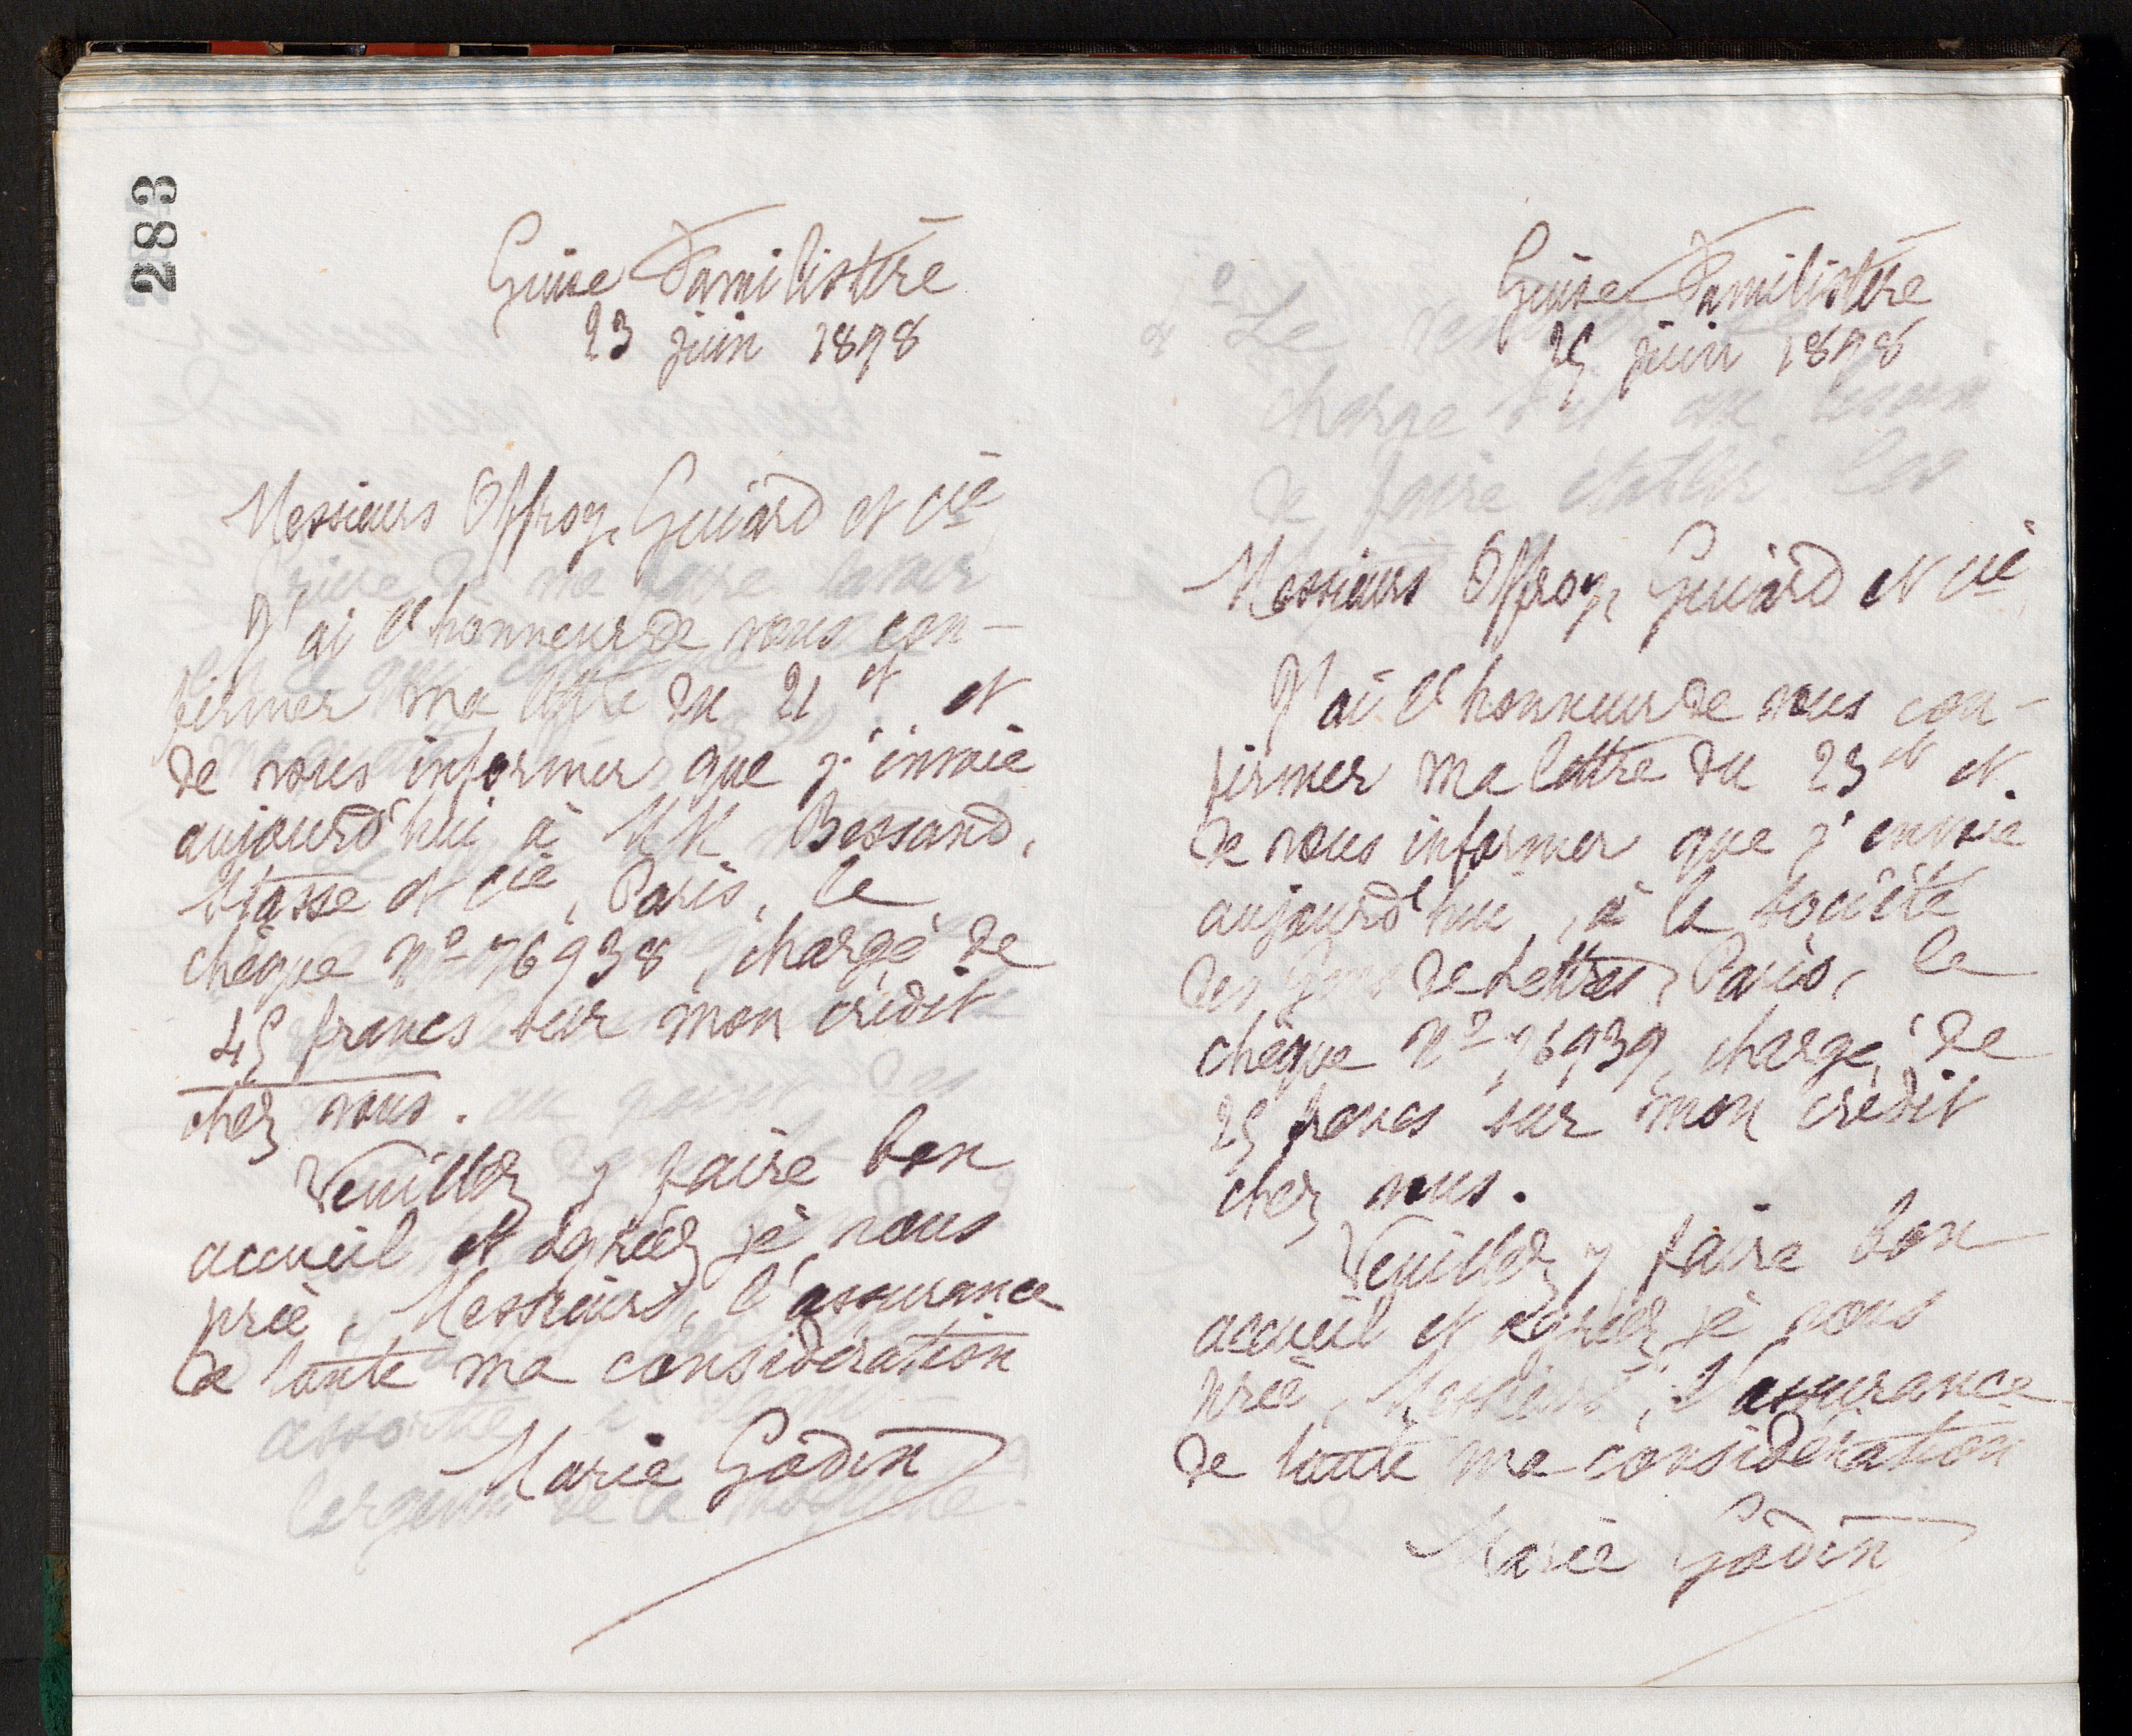 283
Guise Familistère
23 juin 1898
Messieurs Offroy, Guiard et cie
J'ai l'honneur de vous con-
firmer ma lettre du 21 ct et
de vous informer que j'envoie
aujourd'hui à MM Bessand,
Stasse et cie, Paris, le
chèque No 76938, chargé de
45 francs sur mon crédit
chez vous.
Veuillez y faire bon
accueil et agréez, je vous
prie, Messieurs, l'assurance
de toute ma considération
Marie Godin
Guise Familistère
25 juin 1898
Messieurs Offroy, Guiard et cie
J'ai l'honneur de vous con-
firmer ma lettre du 23 ct et
de vous informer que j'envoie
aujourd'hui, à la société
des gens de Lettres, Paris, le
chèque No 76939, chargé de
25 francs sur mon crédit
chez vous.
Veuillez y faire bon
accueil et agréez, je vous
prie, Messieurs, l'assurance
de toute ma considération
Marie Godin